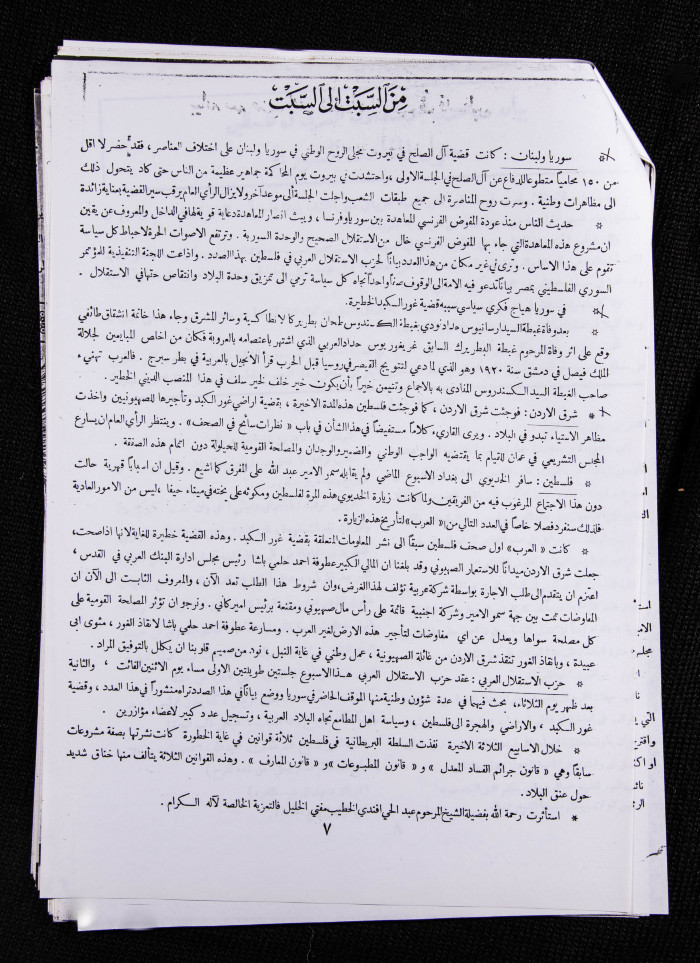 من السبت الى السبت
* سوريا ولبنان : كانت قضية آل الصلح في بيروت مجلى الروح الوطني في سوريا ولبنان على اختلاف العناصر ، فقد حضر لا اقل
من ١٥٠ محامياً متطوعا للدفاع عن آل الصلح في الجلسة الاولى ، واحتشدت في بيروت يوم المحاكمة جماهير عظيمة من الناس حتى كاد يتحول ذلك
الى مظاهرات وطنية . وسرت روح المناصرة الى جميع طبقات الشعب واجلت الجلسة الى موعد آخر ولا يزال الرأي العام يرقب سير القضية بعناية زائدة
* حديث الناس منذ عودة المفوض الفرنسي المعاهدة بين سوريا وفرنسا ، ويبث انصار المعاهدة دعاية قوية لها في الداخل والمعروف عن يقين
ان مشروع هذه المعاهدة التي جاء بها المفوض الفرنسي خال من الاستقلال الصحيح والوحدة السورية . وترتفع الاصوات الحرة لاحباط كل سياسة
تقوم على هذا الاساس . وترى في غير مكان من هذا العدد بياناً لحزب الاستقلال العربي في فلسطين بهذا الصدد . واذاعت اللجنة التنفيذية للمؤتمر
السوري الفلسطيني بمصر بياناً تدعو فيه الامة الى الوقوف صفاً واحداً تجاه كل سياسة ترمي الى تمزيق وحدة البلاد وانتقاص حقها في الاستقلال .
* في سوريا هياج فكري سياسي سببه قضية غور الكبد الخطيرة.
* بعد وفاة غبطة السيد ارسانيوس حداد نودي بغبطة الكسندروس طحان بطريركا لانطاكية وسائر المشرق وجاء هذا خاتمة انشقاق طائفي
وقع على اثر وفاة المرحوم غبطة البطريرك السابق غريغوريوس حداد العربي الذي اشتهر باعتصامه بالعروبة فكان من اخلص المبايعين لجلالة
الملك فيصل في دمشق سنة ١٩٢٠ وهو الذي لما دعي لتتويج القيصر في روسيا قبل الحرب قرأ الانجيل بالعربية في بطرسبرج . فالعرب تهنيء
صاحب الغبطة السيد الكسندروس المنادى به بالاجماع وتتيمن خيراً بأن يكون خير خلف لخير سلف في هذا المنصب الديني الخطير .
* شرق الاردن : فوجئت شرق الاردن ، كما فوجئت فلسطين هذه المدة الاخيرة ، بقضية اراضي غور الكبد وتأجيرها للصهيونيين واخذت
مظاهر الاستياء تبدو في البلاد . ويرى القاريء كلاماً مستفيضاً في هذا الشأن في باب « نظرات سائح في الصحف » . وينتظر الرأي العام ان يسارع
المجلس التشريعي في عمان للقيام بما يقتضيه الواجب الوطني والضمير والوجدان والمصلحة القومية للحيلولة دون اتمام هذه الصفقة .
* فلسطين : سافر الخديوي الى بغداد الاسبوع الماضي ولم يقابله سمو الامير عبد الله على المفرق كما اشيع . وقيل ان اسباباً قهرية حالت
دون هذا الاجتماع المرغوب فيه من الفريقين ولما كانت زيارة الخديوي هذه المرة لفلسطين ومكوثه على يخته في ميناء حيفا ، ليس من الامور العادية
فلذلك سنفرد فصلا خاصاً في العدد التالي من « العرب » لتأريخ هذه الزيارة .
* كانت « العرب » اول صحف فلسطين سبقاً الى نشر المعلومات المتعلقة بقضية غور الكبد . وهذه القضية خطيرة للغاية لانها اذا صحت ،
جعلت شرق الاردن ميداناً للاستعمار الصهيوني وقد بلغنا ان المالي الكبير عطوفة احمد حلمي باشا رئيس مجلس ادارة البنك العربي في القدس ،
اعتزم ان يتقدم الى طلب الاجارة بواسطة شركة عربية تؤلف لهذا الغرض ، وان شروط هذا الطلب تعد الآن ، والمعروف الثابت الى الآن ان
المفاوضات تمت بين جهة سمو الامير وشركة اجنبية قائمة على رأس مال صهيوني ومقنعة برئيس اميركاني . ونرجو ان تؤثر المصلحة القومية على
كل مصلحة سواها ويعدل عن اي مفاوضات لتأجير هذه الارض لغير العرب . ومسارعة عطوفة احمد حلمي باشا لانقاذ الغور ، مثوى ابى
عبيدة ، وبانقاذ الغور تنقذ شرق الاردن من غائلة الصهيونية ، عمل وطني في غاية النبل ، نود من صميم قلوبنا ان يكلل بالتوفيق المراد .
* حزب الاستقلال العربي : عقد حزب الاستقلال العربي هذا الاسبوع جلستين طويلتين الاولى مساء يوم الاثنين الفائت ، والثانية
بعد ظهر يوم الثلاثاء ، بحث فيهما في عدة شؤون وطنية منها الموقف الحاضر في سوريا ووضع بياناً في هذا الصدد تراه منشوراً في هذا العدد ، وقضية
غور الكبد ، والاراضي والهجرة الى فلسطين ، وسياسة اهل المطامع تجاه البلاد العربية ، وتسجيل عدد كبير لاعضاء مؤازرين .
* خلال الاسابيع الثلاثة الاخيرة نفذت السلطة البريطانية في فلسطين ثلاثة قوانين في غاية الخطورة كانت نشرتها بصفة مشروعات
سابقاً وهي « قانون جرائم الفساد المعدل » و « قانون المطبوعات » و « قانون المعارف » . وهذه القوانين الثلاثة يتألف منها خناق شديد
حول عنق البلاد .
* استأثرت رحمة الله بفضيلة الشيخ المرحوم عبد الحي افندي الخطيب مفتي الخليل فالتعزية الخالصة لآله الكرام .
٧